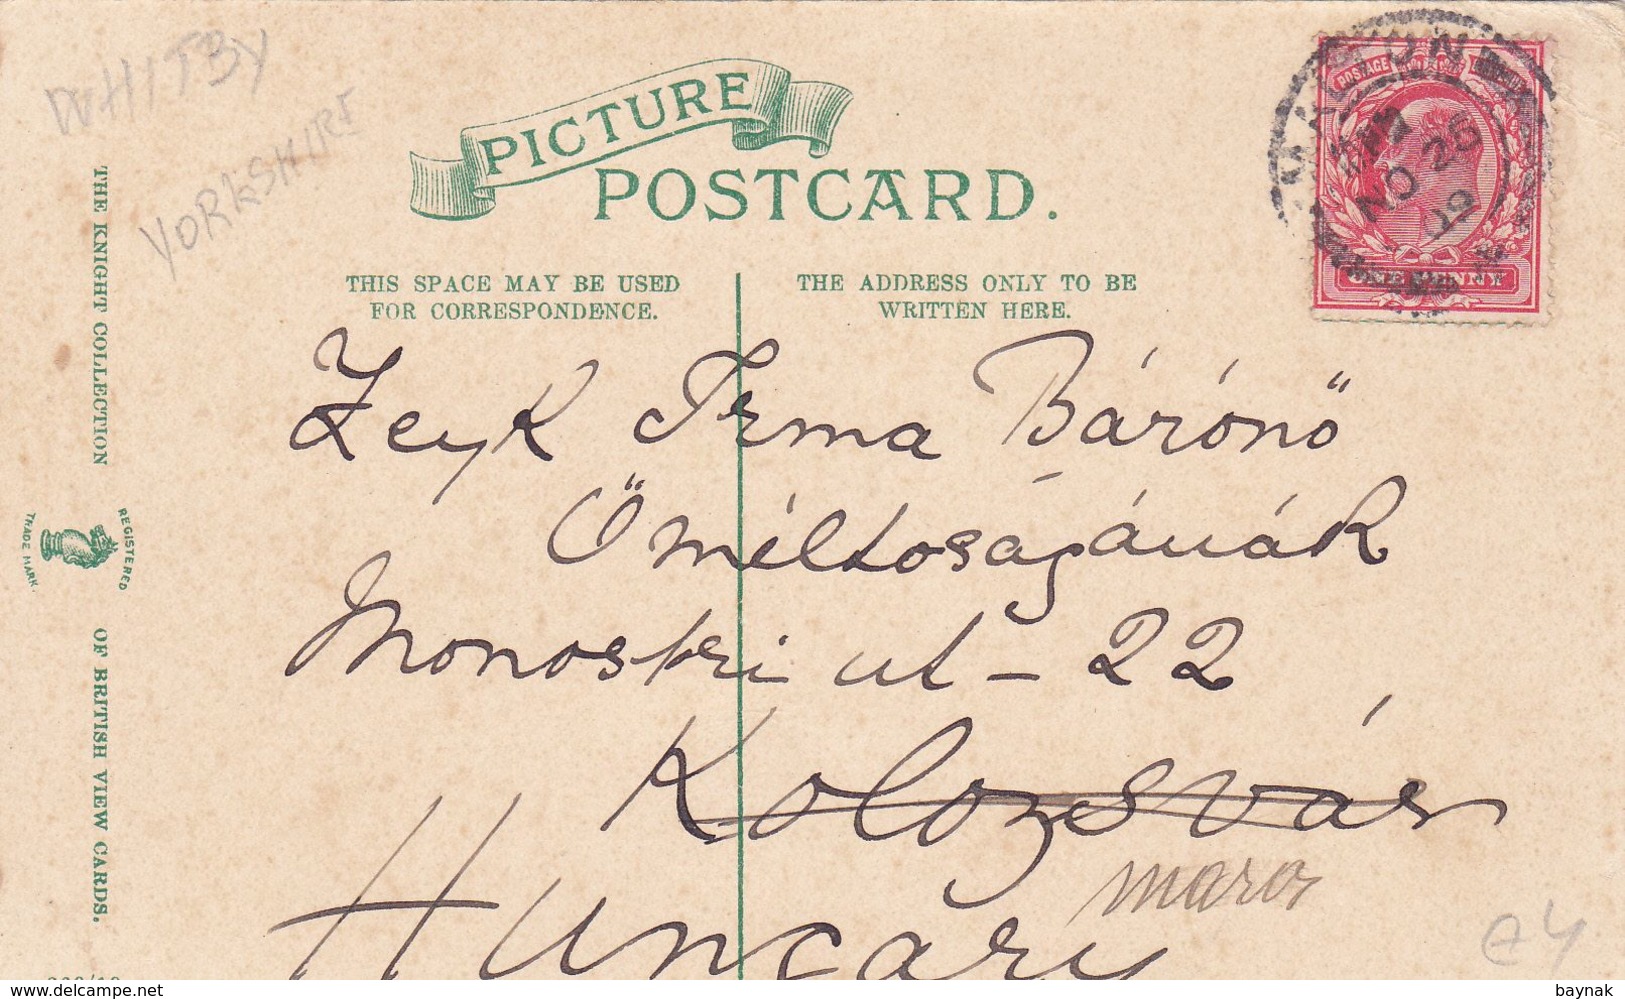 WHITBY
YORKSHIRE
PICTURE
POSTCARD.
THIS SPACE MAY BE USED
FOR CORRESPONDENCE.
THE ADDRESS ONLY TO BE
WRITTEN HERE.
THE KNIGHT COLLECTION
REGISTERED
TRADE MARK.
OF BRITISH VIEW CARDS.
POSTAGE
NO 25
12
Zeyk Irma Bárónő
Őméltoságának
Monostri ut – 22
Kolozsvár
maros
Hungary
e4
baynak
www.delcampe.net